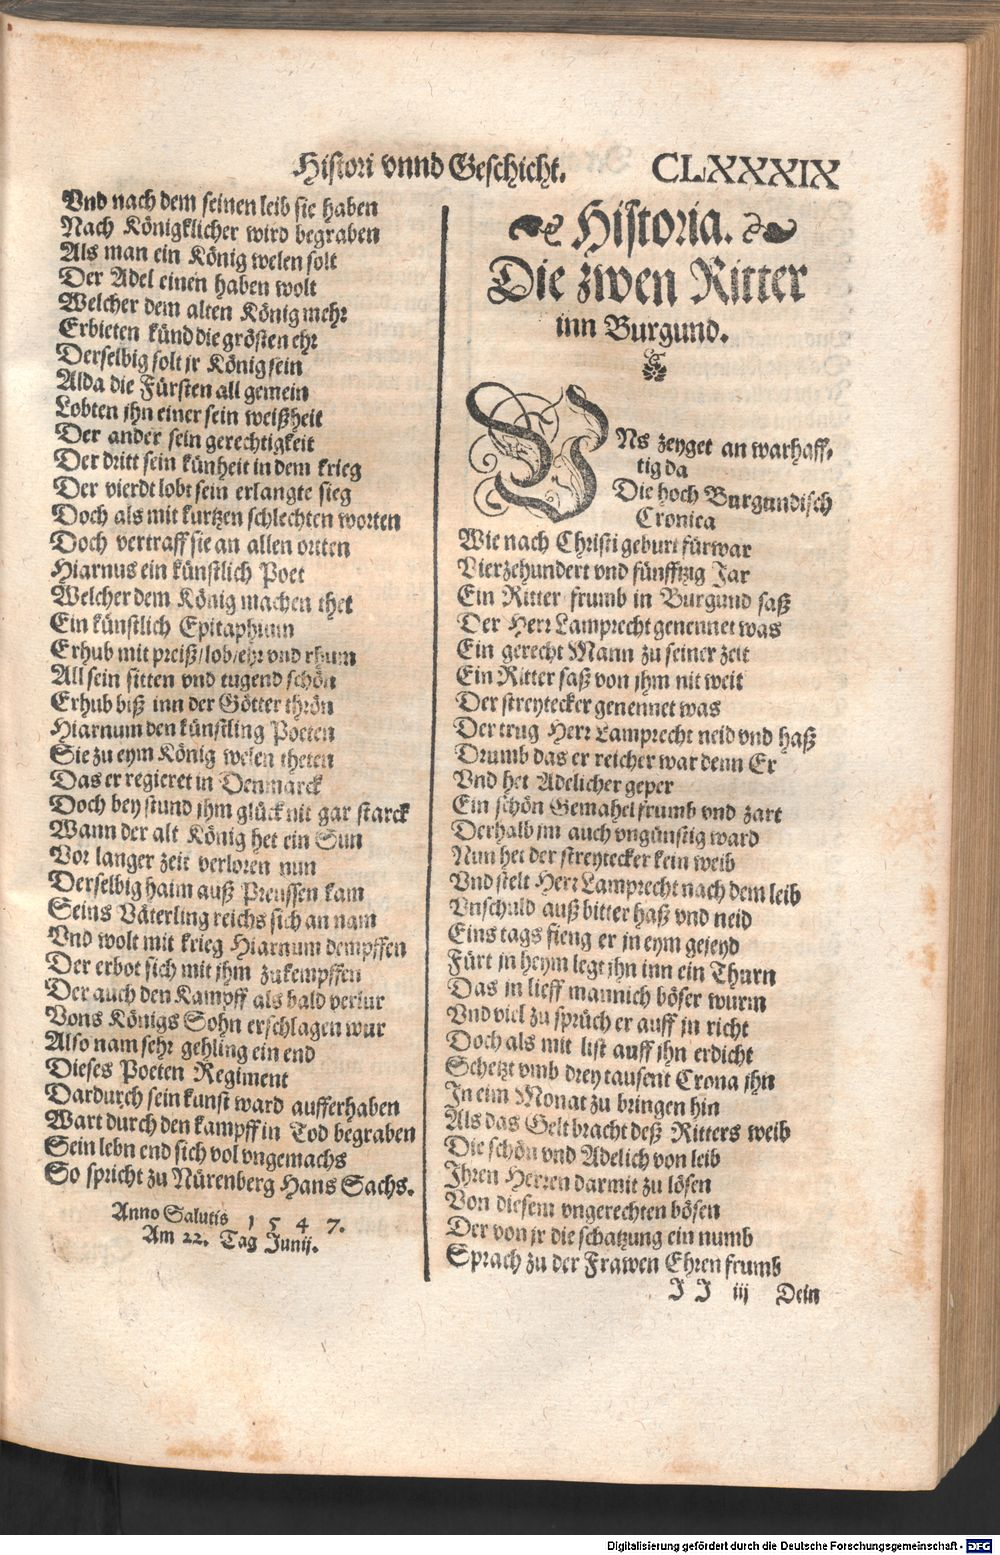 Histori vnnd Geschicht. CLXXXIX
Vnd nach dem seinen leib sie haben
Nach Königklicher wird begraben
Als man ein König welen solt
Der Adel einen haben wolt
Welcher dem alten König mehr
Erbieten künd die grösten ehr
Derselbig solt jr König sein
Alda die Fürsten all gemein
Lobten jhn einer sein weißheit
Der ander sein gerechtigkeit
Der dritt sein künheit in dem krieg
Der vierdt lobt sein erlangte sieg
Doch als mit kurtzen schlechten worten
Doch vertraff sie an allen orten
Hiarnus ein künstlich Poet
Welcher dem König machen thet
Ein künstlich Epitaphium
Erhub mit preiß/lob/ehr vnd rhum
All sein sitten vnd tugend schön
Erhub biß inn der Götter thrön
Hiarnum den künstling Poeten
Sie zu eym König welen theten
Das er regieret in Denmarck
Doch bey stund jhm glück nit gar starck
Wann der alt König het ein Sun
Vor langer zeit verloren nun
Derselbig haim auß Preussen kam
Seins Väterling reichs sich an nam
Vnd wolt mit krieg Hiarnum dempffen
Der erbot sich mit jhm zukempffen
Der auch den Kampff als bald verlur
Vons Königs Sohn erschlagen wur
Also nam sehr gehling ein end
Dieses Poeten Regiment
Dardurch sein kunst ward aufferhaben
Wart durch den kampff in Tod begraben
Sein lebn end sich vol vngemachs
So spricht zu Nürenberg Hans Sachs.
Anno Salutis 1547.
Am 22. Tag Junij.
Historia.
Die zwen Ritter
inn Burgund.
VNs zeyget an warhaff-
tig da
Die hoch Burgundisch
Cronica
Wie nach Christi geburt fürwar
Vierzehundert vnd fünfftzig Jar
Ein Ritter frumb in Burgund saß
Der Herr Lamprecht genennet was
Ein gerecht Mann zu seiner zeit
Ein Ritter saß von jhm nit weit
Der streytecker genennet was
Der trug Herr Lamprecht neid vnd haß
Drumb das er reicher war denn Er
Vnd het Adelicher geper
Ein schön Gemahel frumb vnd zart
Derhalb jm auch vngünstig ward
Nun het der streytecker kein weib
Vnd stelt Herr Lamprecht nach dem leib
Vnschuld auß bitter haß vnd neid
Eins tags fieng er jn eym gejeyd
Fürt jn heym legt jhn inn ein Thurn
Das jn lieff mannich böser wurm
Vnd viel zu sprüch er auff jn richt
Doch als mit list auff jhn erdicht
Schetzt vmb drey tausent Crona jhn
In eim Monat zu bringen hin
Als das Gelt bracht deß Ritters weib
Die schön vnd Adelich von leib
Ihren Herren darmit zu lösen
Von diesem vngerechten bösen
Der von jr die schatzung ein numb
Sprach zu der Frawen Ehren frumb
JJ iij Dein
Digitalisierung gefördert durch die Deutsche Forschungsgemeinschaft - DFG